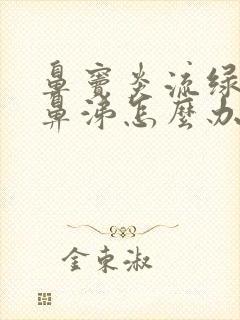 鼻窦炎流绿
鼻涕怎麼办
金东淑